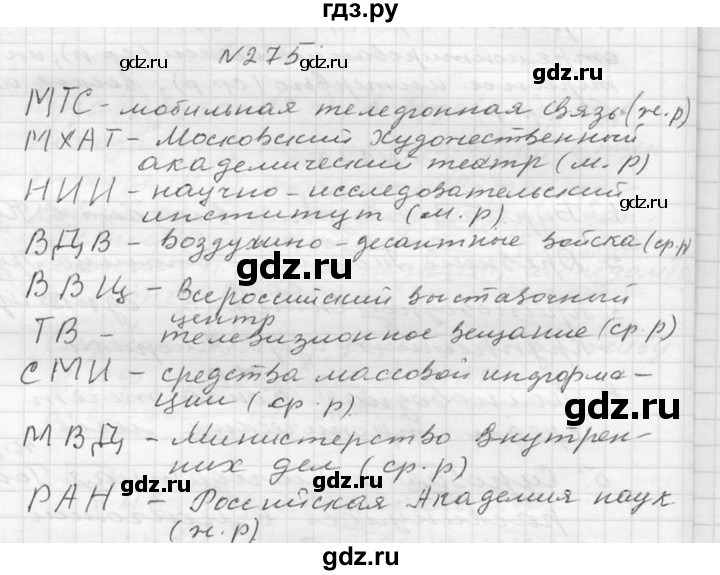 гдз.ру
N275
gdz.ru gdz.ru
МТС - мобильная телефонная связь (ж.р)
МХАТ - Московский Художественный
академический театр (м.р)
НИИ - научно-исследовательский
институт (м.р)
ВДВ - Воздушно-десантные войска (ср.р
gdz.ru
ВВЦ - Всероссийский выставочный
центр
ТВ - телевизионное вещание (ср.р)
СМИ - средства массовой информа-
ции (ср.р)
gdz.ru
МВД - Министерство внутрен-
них дел (ср.р)
gdz.ru gdz.ru
РАН - Российская Академия наук
(ж.р)
gdz.ru